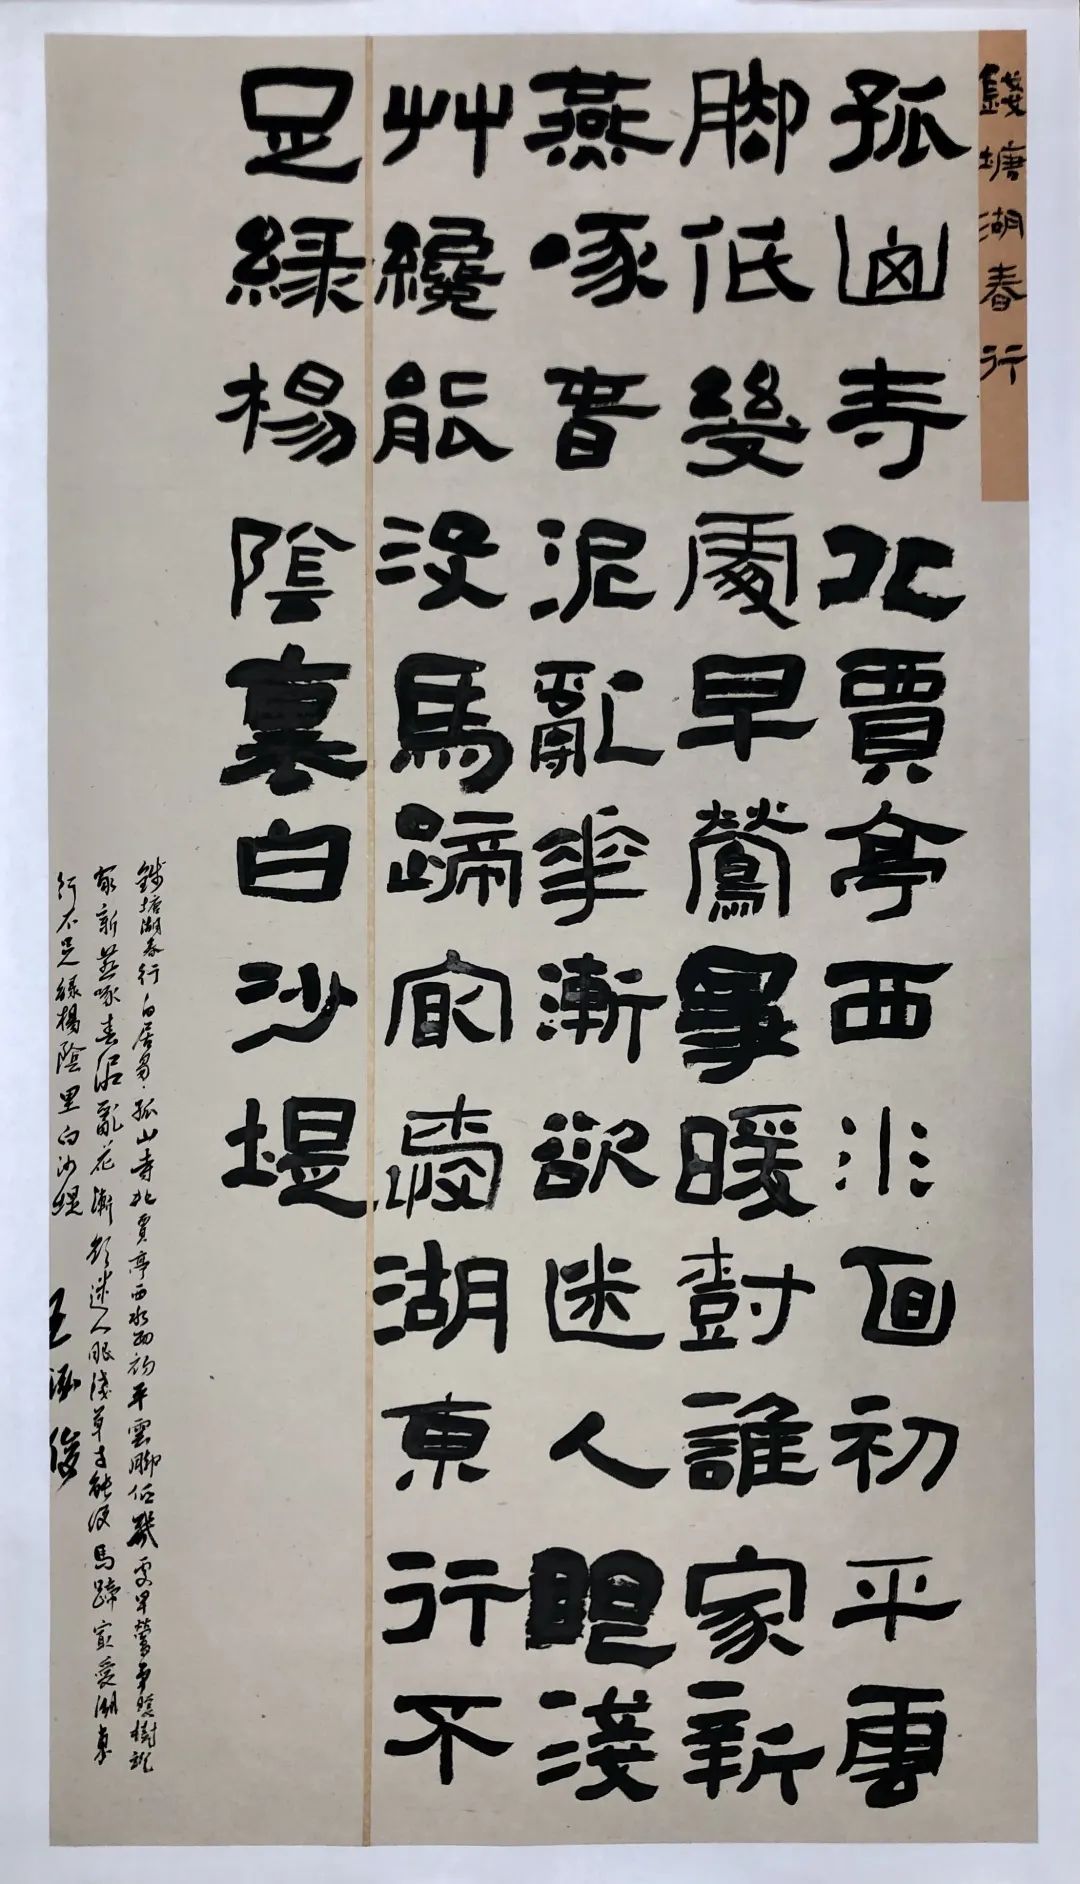 錢塘湖春行
孤山寺北賈亭西水面初平雲
脚低幾處早鶯爭暖尌誰家新
燕啄春泥亂華漸欲迷人眼淺
艸纔能沒馬蹄最愛湖東行不
足綠楊陰裏白沙堤
錢塘湖春行白居易·孤山寺北賈亭西水面初平雲脚低幾處早鶯爭暖樹誰
家新燕啄春泥亂花漸欲迷人眼淺草才能沒馬蹄最愛湖東
行不足綠楊陰里白沙堤
王俊